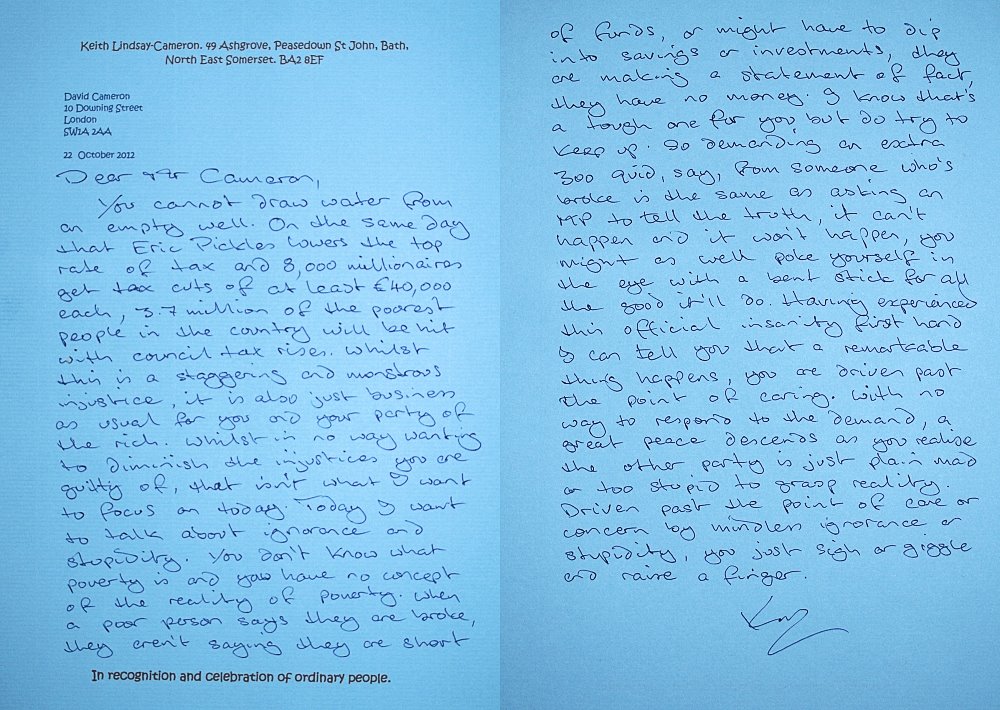 Keith Lindsay-Cameron. 49 Ashgrove, Peasedown St John, Bath,
North East Somerset. BA2 8EF
David Cameron
10 Downing Street
London
SW1A 2AA
22 October 2012
Dear Mr Cameron,
You cannot draw water from
an empty well. On the same day
that Eric Pickles lowers the top
rate of tax and 8,000 millionaires
get tax cuts of at least £40,000
each, 3.7 million of the poorest
people in the country will be hit
with council tax rises. Whilst
this is a staggering and monstrous
injustice, it is also just business
as usual for you and your party of
the rich. Whilst in no way wanting
to diminish the injustices you are
guilty of, that isn't what I want
to focus on today. Today I want
to talk about ignorance and
stupidity. You don't know what
poverty is and you have no concept
of the reality of poverty. When
a poor person says they are broke,
they aren't saying they are short
In recognition and celebration of ordinary people.
of funds, or might have to dip
into savings or investments, they
are making a statement of fact,
they have no money. I know that's
a tough one for you, but do try to
keep up. So demanding an extra
300 quid, say, from someone who's
broke is the same as asking an
MP to tell the truth, it can't
happen and it won't happen, you
might as well poke yourself in
the eye with a bent stick for all
the good it'll do. Having experienced
this official insanity first hand
I can tell you that a remarkable
thing happens, you are driven past
the point of caring. With no
way to respond to the demand, a
great peace descends as you realise
the other party is just plain mad
or too stupid to grasp reality.
Driven past the point of care or
concern by mindless ignorance or
stupidity, you just sigh or giggle
and raise a finger.